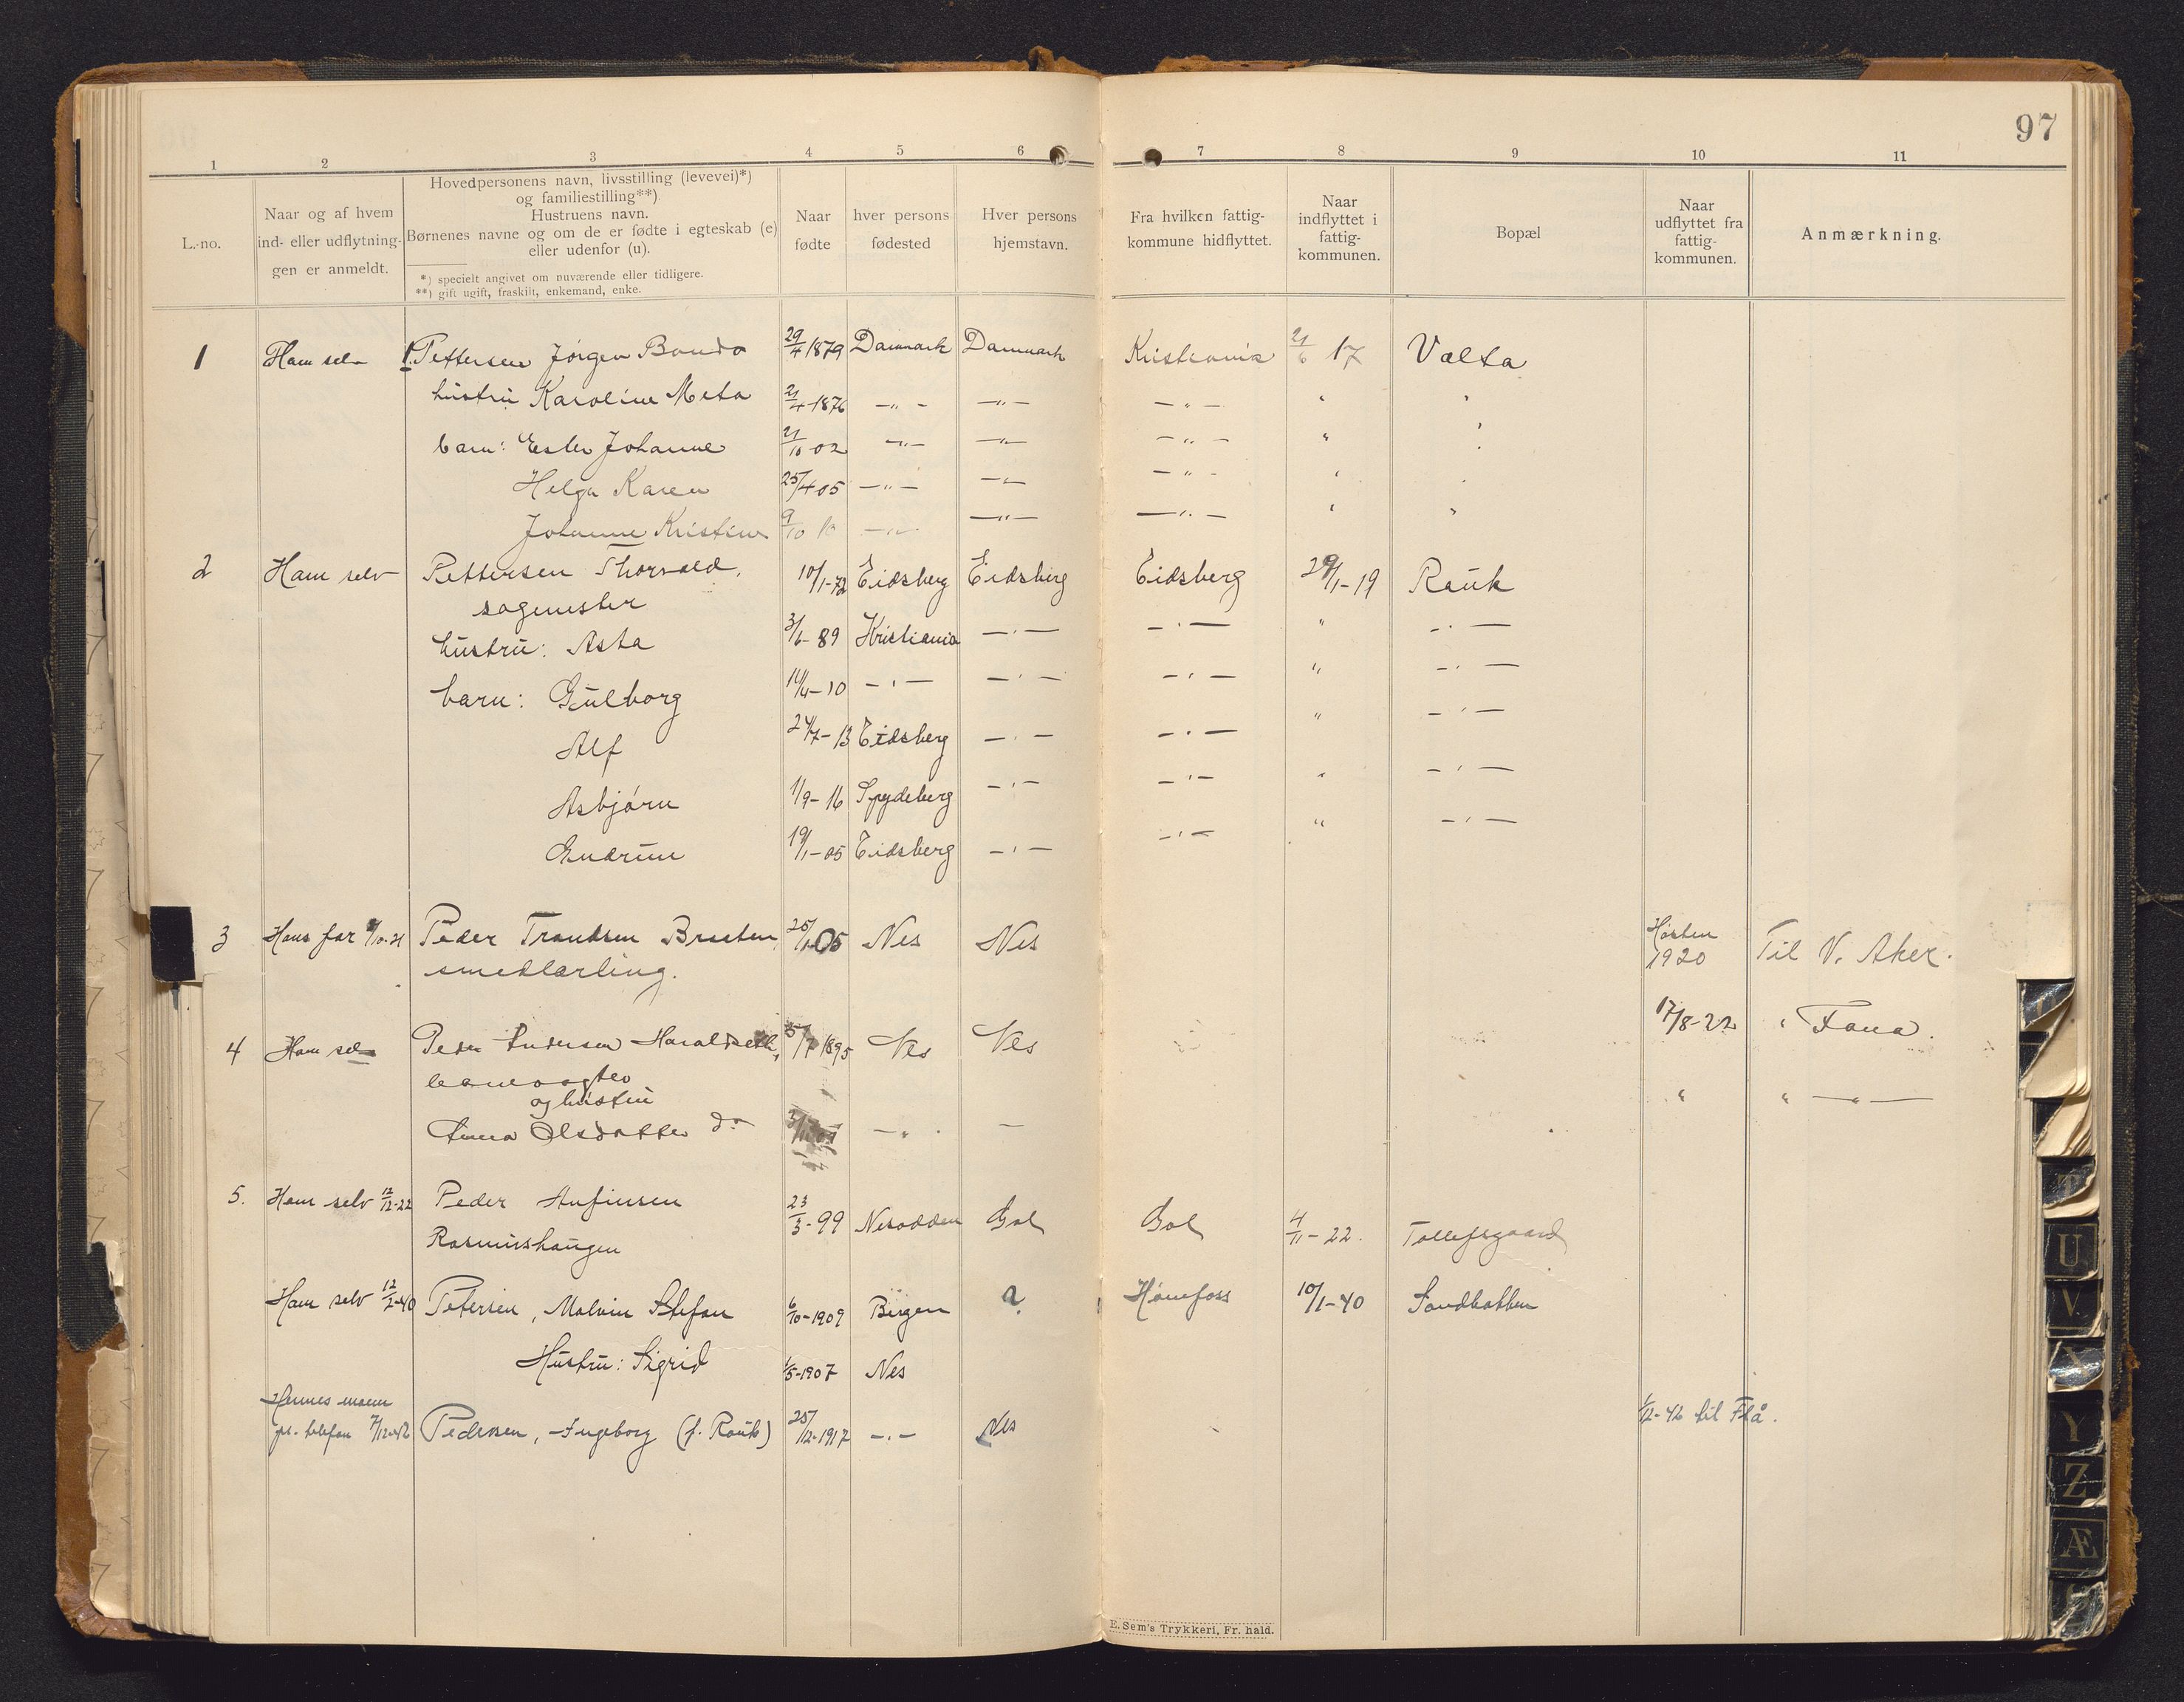 97
1 2 3 4 5 6 7 8 9 10 11
L.-no.
Naar og af hvem
ind- eller udflytning-
gen er anmeldt.
Hovedpersonens navn, livsstilling (levevei)*)
og familiestilling**)
Hustruens navn.
Børnenes navne og om de er fødte i egteskab (e)
eller udenfor (u).
*) specielt angivet om nuværende eller tidligere.
**) gift ugift, fraskilt, enkemand, enke.
Naar
fødte
hver persons
fødested
Hver persons
hjemstavn.
Fra hvilken fattig-
kommune hidflyttet.
Naar
indflyttet i
fattig-
kommunen.
Bopæl
Naar
udflyttet fra
fattig-
kommunen.
Anmærkning.
1 Ham selv Pettersen Jörgen 29/4 1879 Danmark Danmark Kristiania 21/6 17 Valta
hustru Karoline Meta 21/4-1876 -"- -"- -"- " "
barn: Ester Johanne 21/10 02 -"- -"- -"- " "
Helga Karen 25/4 05 -"- -"- -"- " "
Johanne Kristine 9/10 10 -"- -"- -"- " "
2 Ham selv Pettersen Thorvald, 10/1-72 Eidsberg Eidsberg Eidsberg 29/1-19 Rauk
sagmester
hustru: Asta 3/6-89 Kristiania -"- -"- " -"-
barn: Gulborg 14/4-10 -"- -"- -"- " -"-
Alf 24/7-13 Eidsberg -"- -"- " -"-
Asbjörn 1/9-16 Spydeberg -"- -"- " -"-
Gudrun 19/1-05 Eidsberg -"- -"- " -"-
3 Hans far /10-21 Peder Trondsen Braaten, 25/1-05 Nes Nes Hösten 1920 Til V. Aker.
smedlærling.
4 Ham selv Peder Andersen Haraldseth, /7 1895 Nes Nes 17/8-22 " Fana.
banevogter
og hustru
Anna Olsdatter do -"- - " " -"-
5. Ham selv 12/12-22 Peder Anfinsen 23/3-99 Nesodden Gol Gol 4/11-22. Tollefsgaard
Rasmushaugen
Ham selv 12/2-40 Petersen, Malvin Stefan 6/10-1909 Bergen ? Hönefoss 10/1-40 Sandbakken
Hustru: Sigrid 1/5-1907 Nes
Hennes mann
pr. telefon 7/12-42 Pedersen, Ingeborg (f. Rauk) 25/12-1917 -"- Nes 1/12-42 til Flå.
E. Sem's Trykkeri, Fr. hald.
U
V
X
Y
Z
Æ